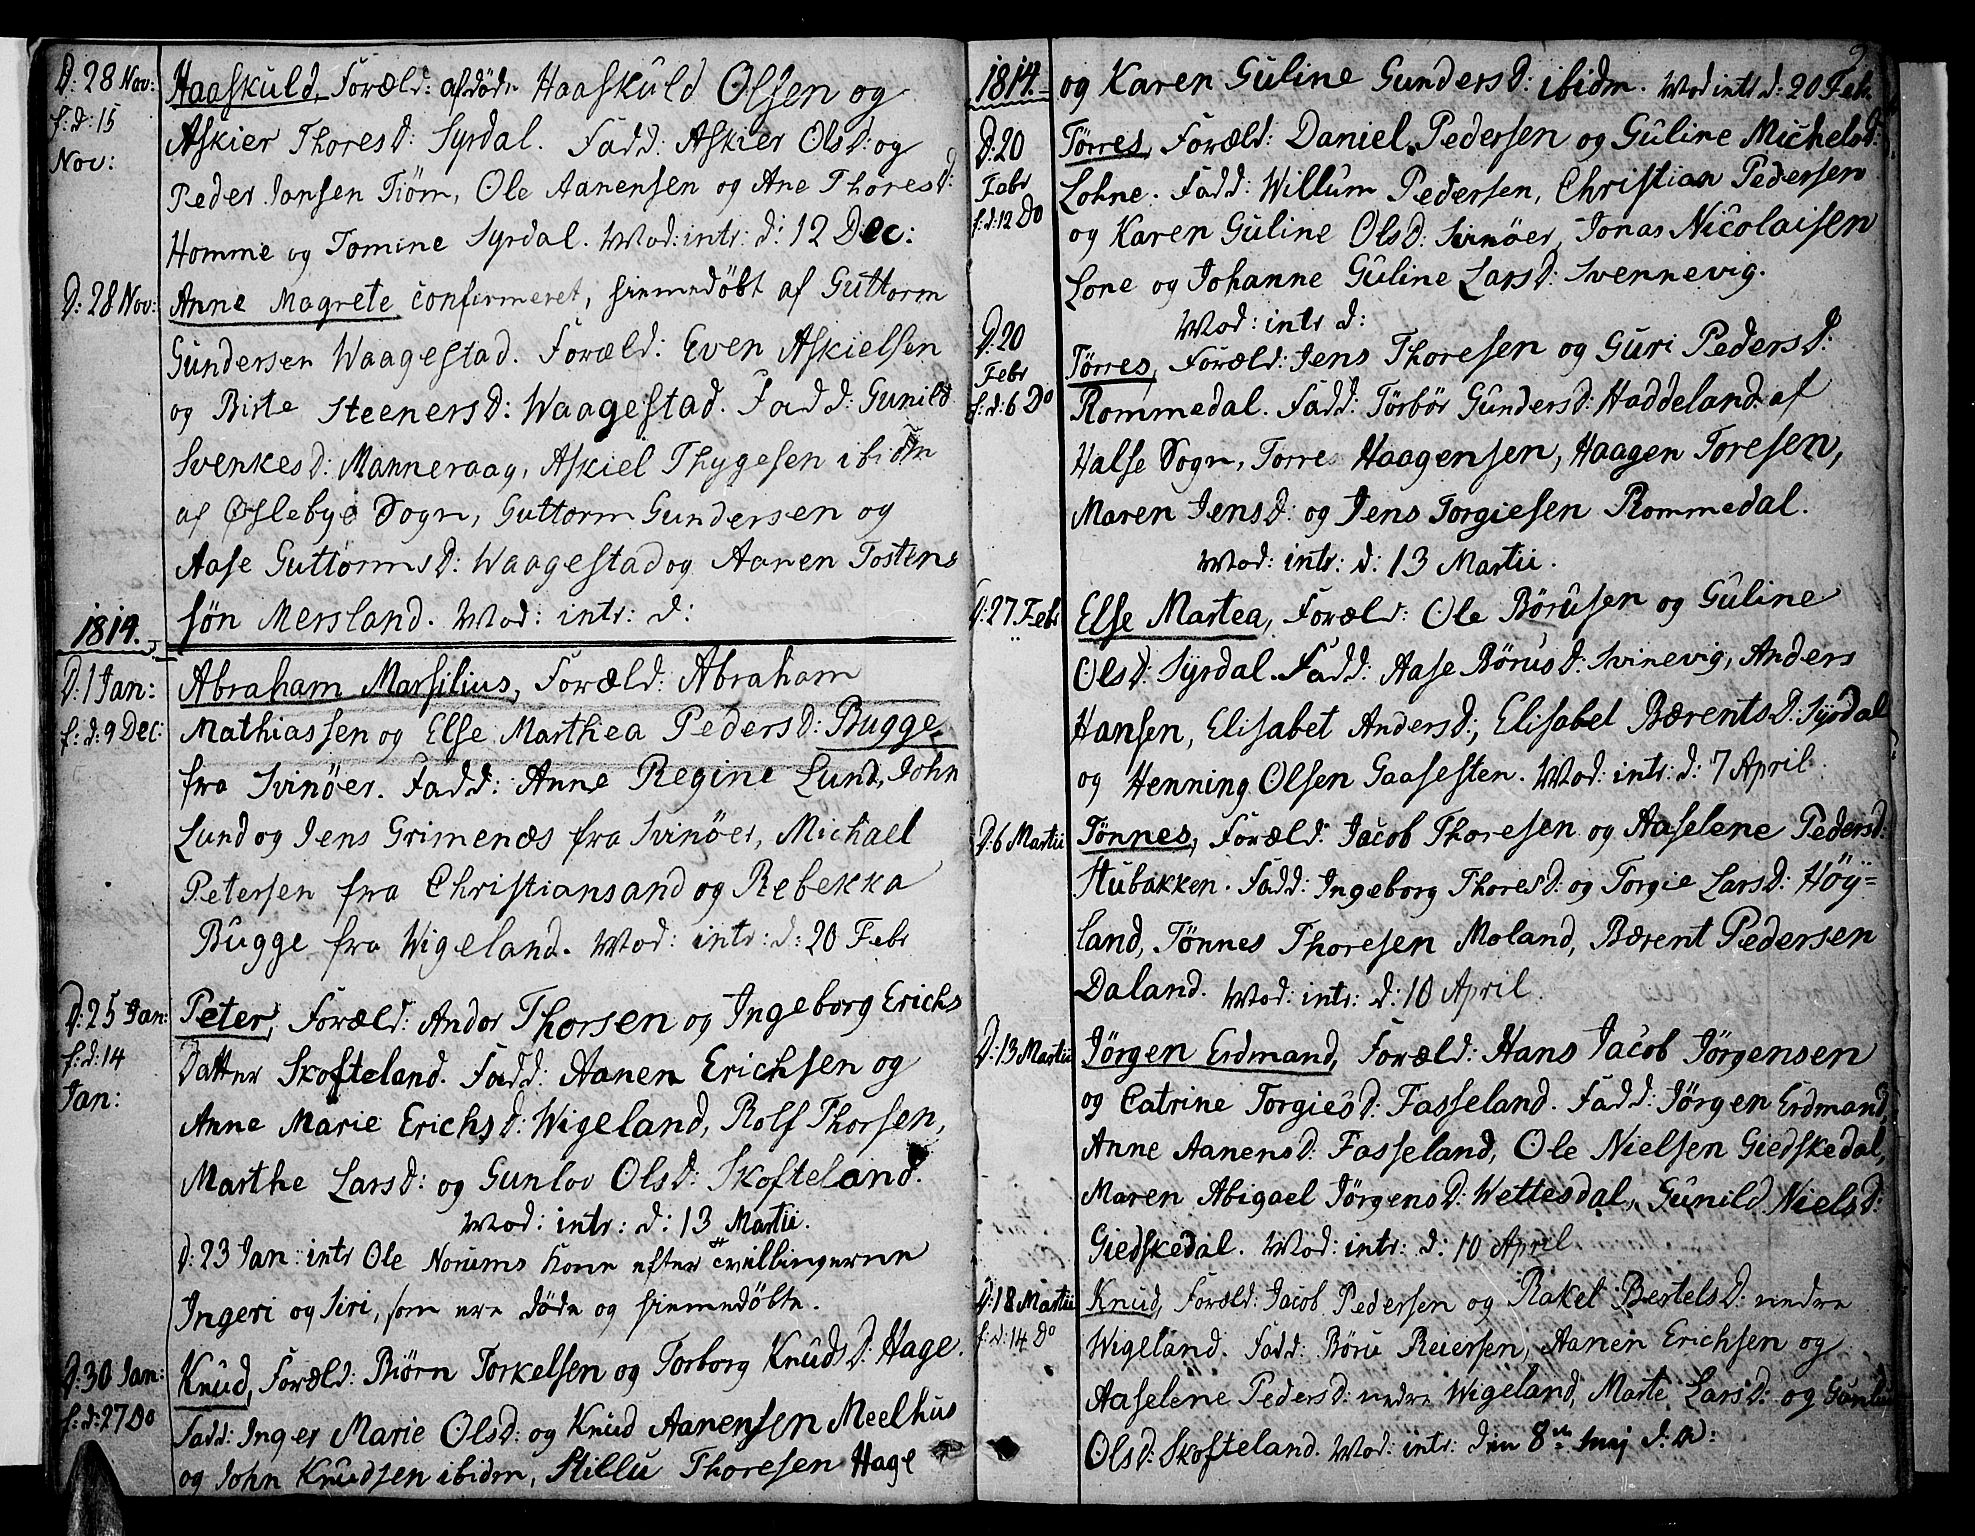 D: 28 Nov:
f: d: 15
Nov:
Haaskuld, Foræld: afdøde Haaskuld Olsen og
Askier Thoresd: Syrdal. Fadd: Askier Olsd: og
Peder Jansen Tiøm, Ole Aanensen og Ane Thoresd:
Homme og Tomine Syrdal. Mod: intr: d: 12 Dec:
D: 28 Nov:
Anne Magrete confirmeret, hiemmedøbt af Guttorm
Gundersen Waagestad. Foræld: Even Askielsen
og Birte Steenersd: Waagestad. Fadd: Gunild
Svenkesd: Manneraag, Askiel Thygesen ibidm
af Øslebye Sogn, Guttorm Gundersen og
Aase Guttormsd: Waagestad og Aanen Tostens
søn Mersland. Mod: intr: d:
1814.
D: 1 Jan:
f: d: 9 Dec:
Abraham Marsilius, Foræld: Abraham
Mathiassen og Else Marthea Pedersd: Bugge
fra Svinöer. Fadd: Anne Regine Lund, John
Lund og Jens Grimenæs fra Svinöer, Michael
Petersen fra Christiansand og Rebekka
Bugge fra Wigeland. Mod: intr: d: 20 Febr
D: 25 Jan:
f: d: 14
Jan:
Peter, Foræld: Andor Thorsen og Ingeborg Erichs
Datter Skofteland. Fadd: Aanen Erichsen og
Anne Marie Erichsd: Wigeland, Rolf Thorsen,
Marthe Larsd: og Gunlov Olsd: Skofteland.
Mod: intr: d: 13 Martii.
D: 23 Jan: intr Ole Norums Kone efter tvillingerne
Ingeri og Siri, som ere döde og hiemmedöbte.
D: 30 Jan:
f: d: 27 Do
Knud, Foræld: Biørn Torkelsen og Torborg Knudsd: Hage.
Fadd: Inger Marie Olsd: og Knud Aanensen Meelhus
og John Knudsen ibidm, Stillu Thoresen Hage
1814.
og Karen Guline Gundersd: ibidm. Mod intr d: 20 Feb.
D: 20
Febr
f: d: 12 Do
Törres, Foræld: Daniel Pedersen og Guline Michelsd:
Lohne. Fadd: Willum Pedersen, Christian Pedersen
og Karen Guline Olsd: Svinöer, Jonas Nicolaisen
Lone og Johanne Guline Larsd: Svennevig.
Mod: intr d:
D: 20
Febr
f: d: 6 Do
Törres, Foræld: Jens Thoresen og Guri Pedersd:
Rommedal. Fadd: Törbör Gundersd: Haddeland af
Halse Sogn, Torres Haagensen, Haagen Toresen,
Maren Jensd: og Jens Torgiesen Rommedal.
Mod: intr: d: 13 Martii.
D: 27 Febr
Else Martea, Foræld: Ole Börusen og Guline
Olsd: Syrdal. Fadd: Aase Börusd: Svinevig, Anders
Hansen, Elisabet Andersd:, Elisabet Bærentsd: Syrdal
og Henning Olsen Gaasesten. Mod: intr: d: 7 April.
D: 6 Martii
Tönnes, Foræld: Jacob Thoresen og Aaselene Pedersd:
Stubakken. Fadd: Ingeborg Thoresd: og Torgie Larsd: Höy=
land, Tönnes Thoresen Moland, Bærent Pedersen
Daland. Mod: intr: d: 10 April.
D: 13 Martii
Jörgen Erdmand, Foræld: Hans Jacob Jörgensen
og Catrine Torgiesd: Fasseland. Fadd: Jörgen Erdmand,
Anne Aanensd: Fasseland, Ole Nielsen Giedskedal,
Maren Abigael Jörgensd: Wettesdal, Gunild Nielsd:
Giedskedal. Mod: intr: d: 10 April.
D: 18 Martii
f: d: 14 Do
Knud, Foræld: Jacob Pedersen og Rakel Bertelsd: nedre
Wigeland. Fadd: Böru Reiersen, Aanen Erichsen og
Aaselene Pedersd: nedre Wigeland, Marte Larsd: og Gunlau
Olsd: Skofteland. Mod: intr: den 8de Maj d: A: